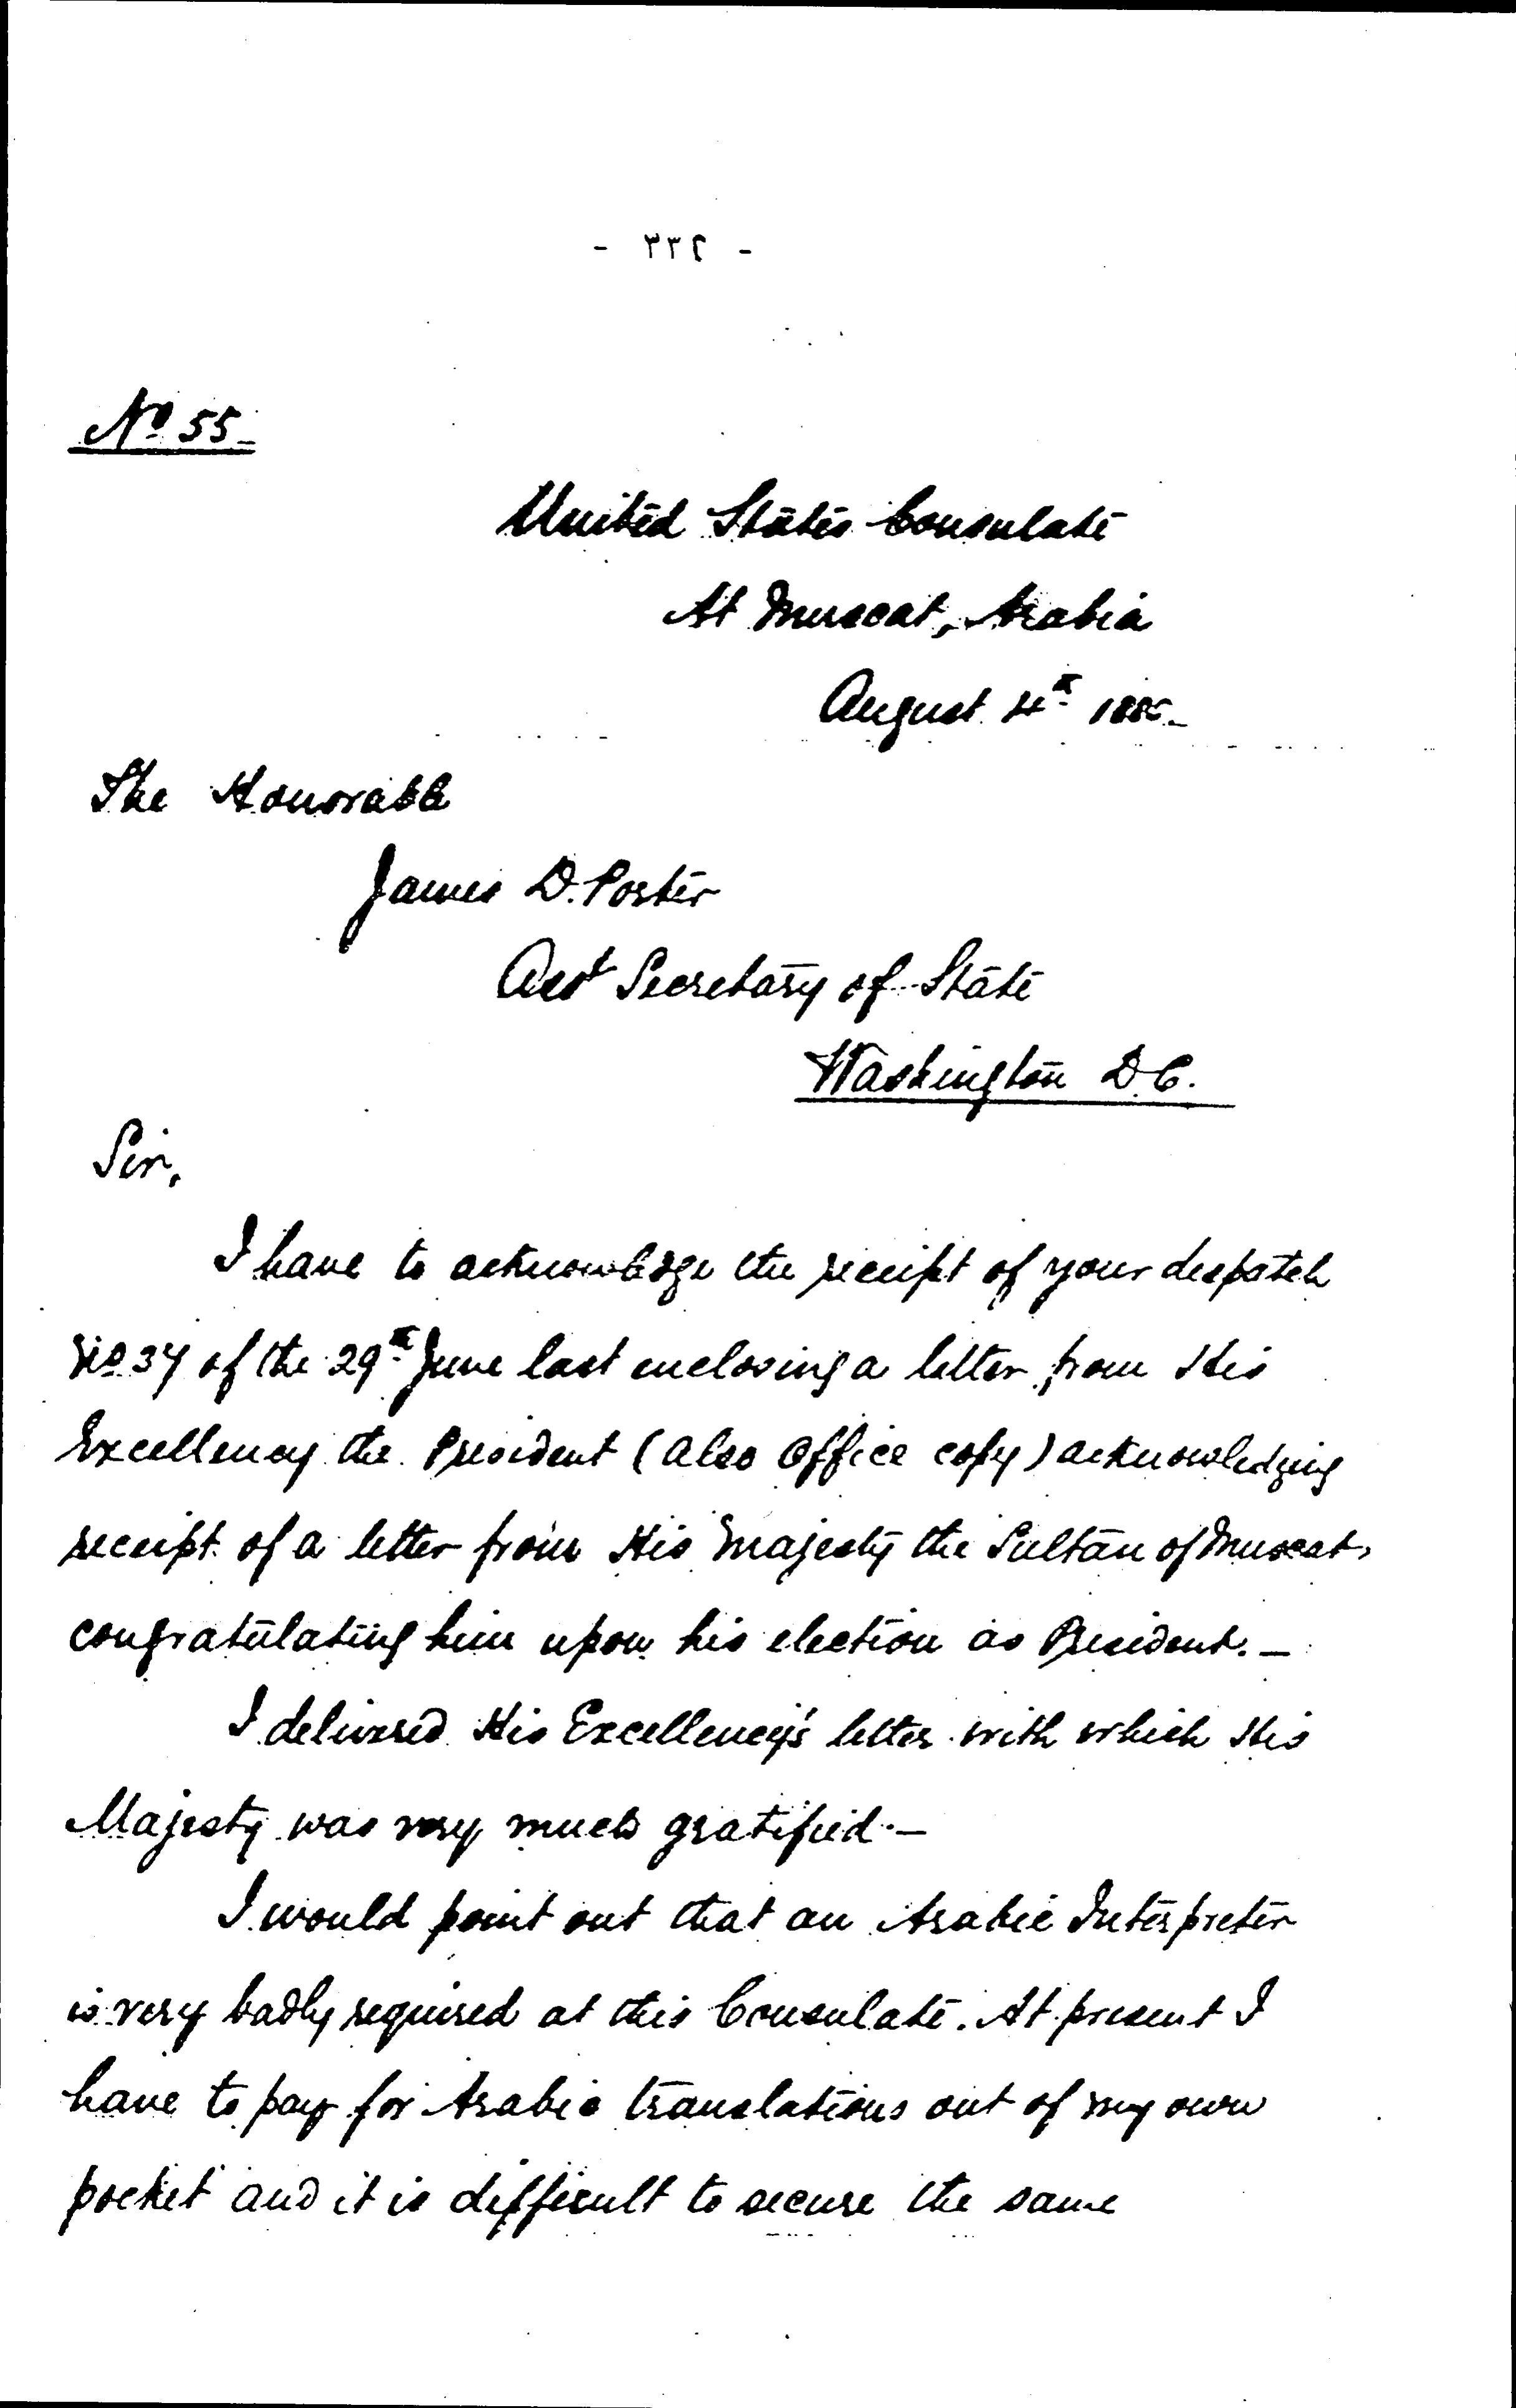 - ٣٣٢ -
No 55
United States Consulate
At Muscat, Arabia
August 4th 188
The Honorable
James D. Porter
Asst Secretary of State
Washington D.C.
Sir,
I have to acknowledge the receipt of your despatch
No 37 of the 29th June last enclosing a letter from His
Excellency the President (also Office copy) acknowledging
receipt of a letter from His Majesty the Sultan of Muscat,
congratulating him upon his election as President. —
I delivered His Excellency's letter with which His
Majesty was very much gratified. —
I would point out that an Arabic Interpreter
is very badly required at this Consulate. At present I
have to pay for Arabic translations out of my own
pocket and it is difficult to secure the same